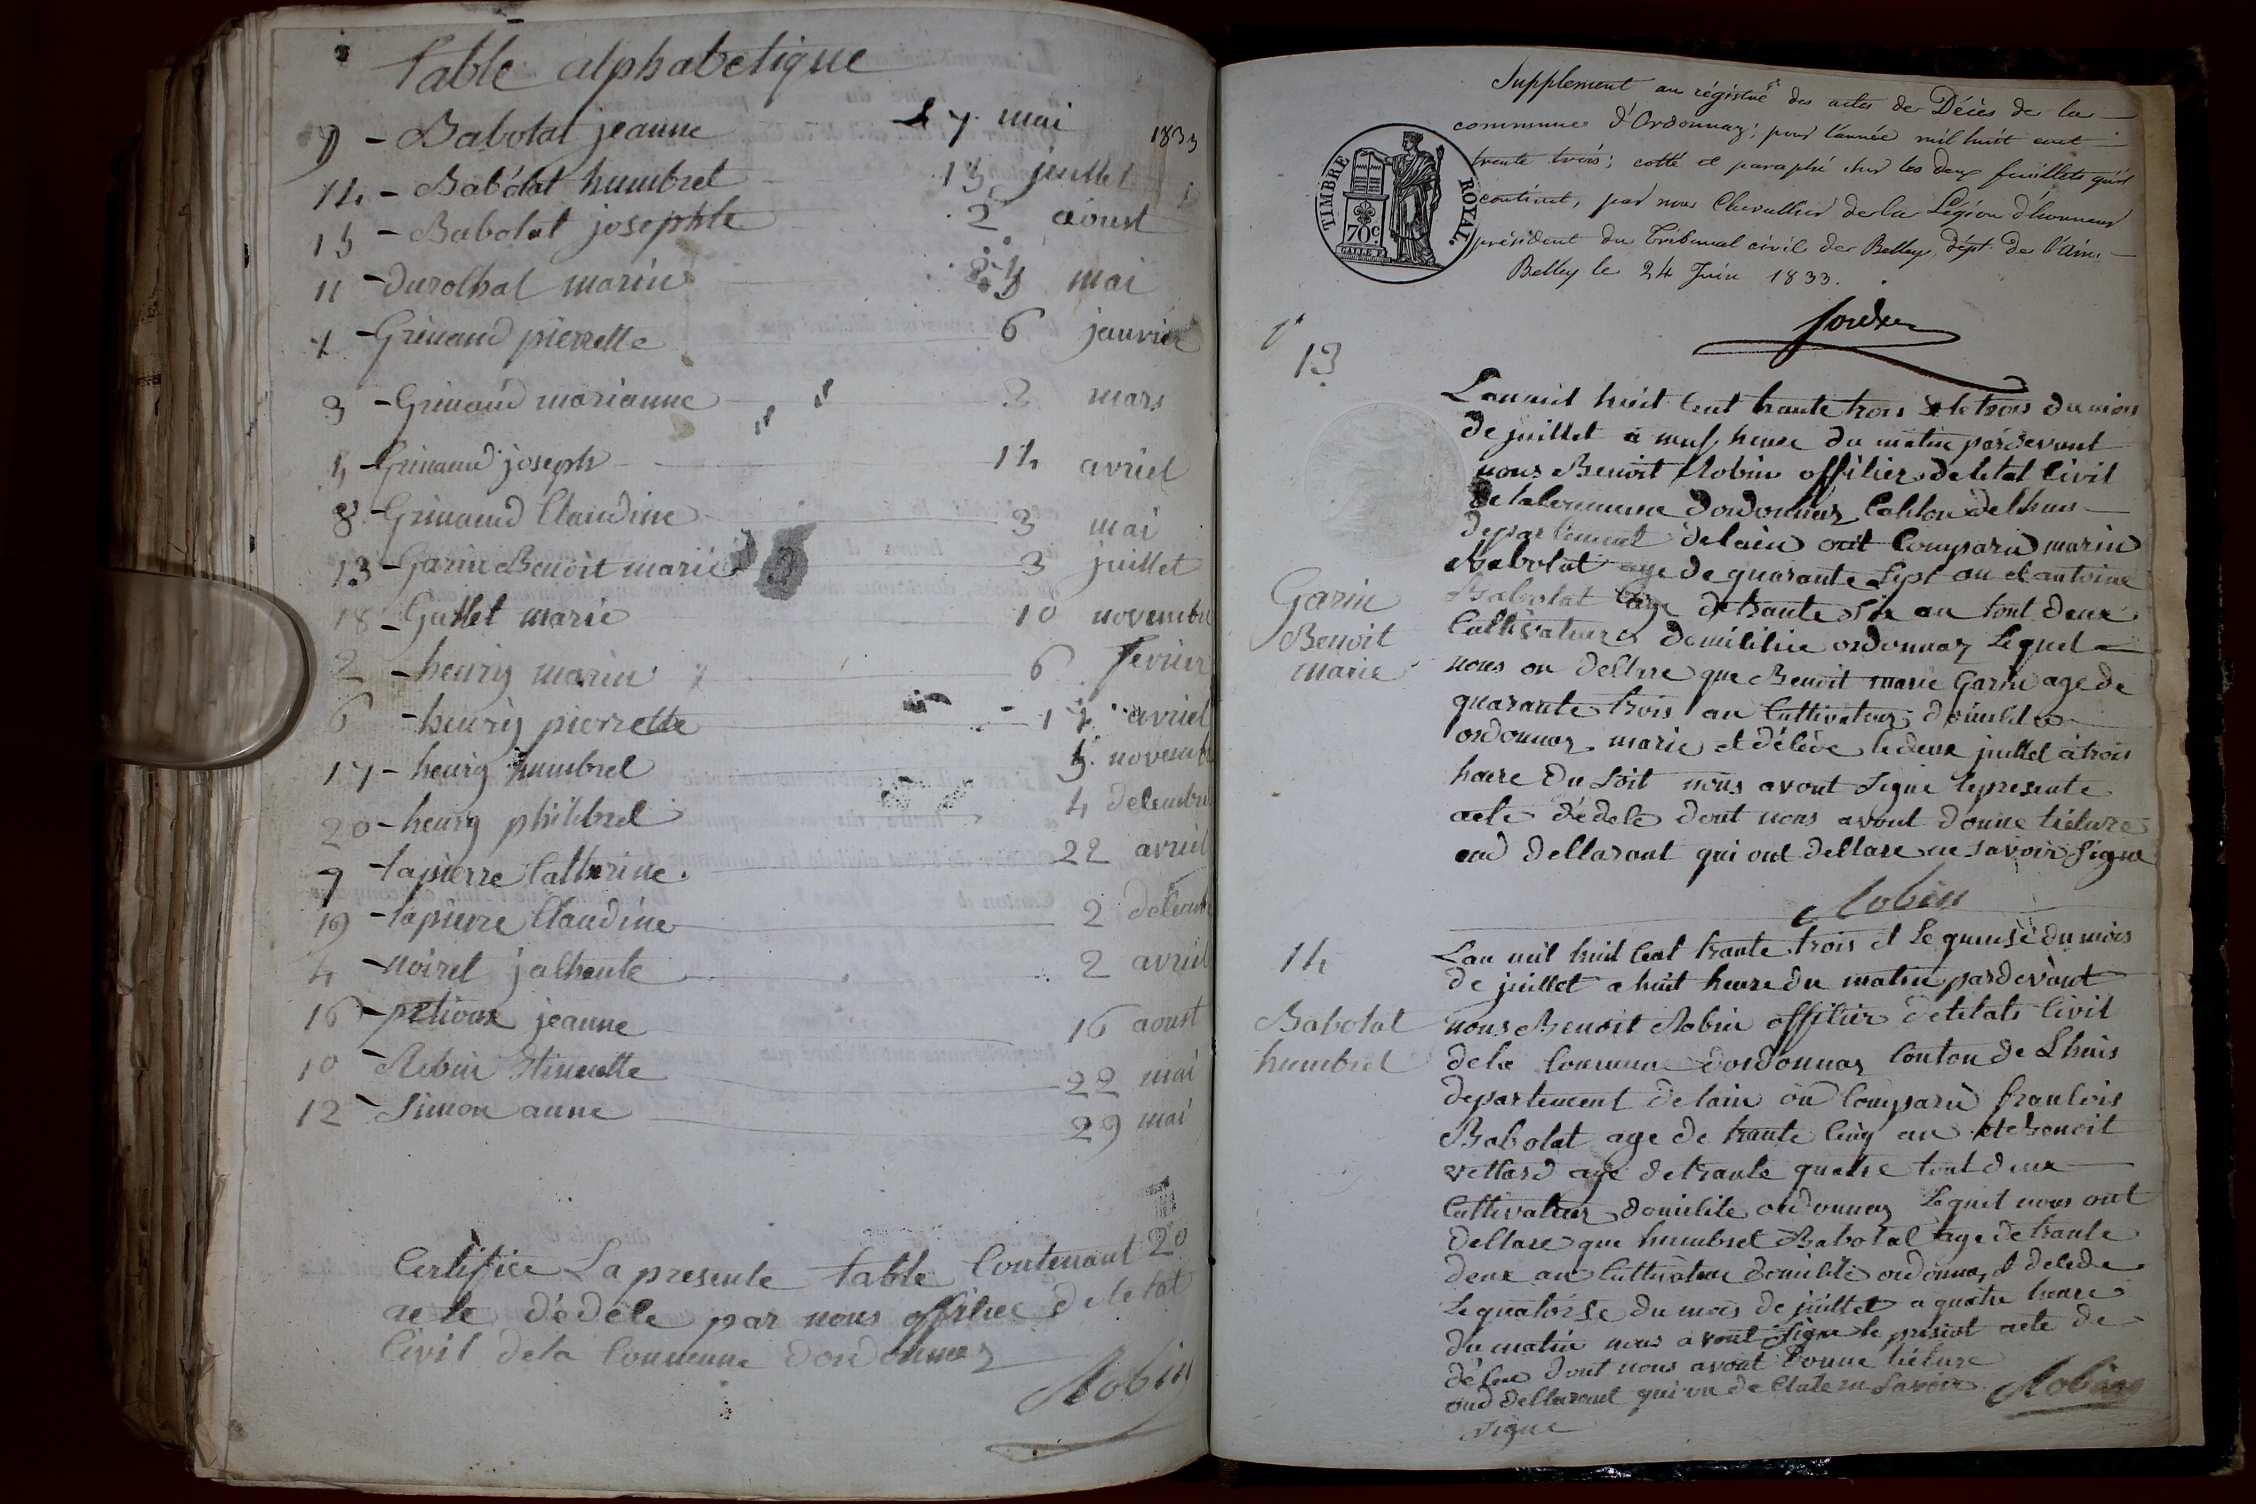 Table alphabetique
9 - Babolat jeanne 7 mai 1833
14 - Babolat humbret 15 juillet
15 - Babolat josephte 2 aoust
11 - durolhat marin mai
1 - Grinand pierrette 6 janvier
3 - Grinand marianne 2 mars
5 - Grinand joseph 14 avriel
8 - Grinand Claudine 3 mai
13 - Garin Benoit marie 3 juillet
18 - Gullet marie 10 novembre
2 - henriy marin 6 fevrier
6 - henriy pierrette 17 avriel
17 - henriy humbrel 5 novembre
20 - henriy philibrel 4 decembre
7 - lapierre Catherine 22 avriel
19 - lapierre Claudine 2 decembre
4 - noiret jacheinte 2 avriel
16 - petioux jeanne 16 aoust
10 - Robin Etinnette 22 mai
12 - Simon anne 29 mai
Certifiée La presente table Contenant 20
acte dédéce par nous offitier de letat
Civil de la Commune dordonnaz
Robin
Supplement au régistre des actes de Décès de la
commune d'Ordonnaz; pour l'année mil huit cent
trente trois; cotté et paraphé sur les deux feuillets qu'il
contient, par nous Chevallier de la Légion d'honneur
président du Tribunal civil de Belley, dépt de l'Ain.
Belley le 24 Juin 1833.
TIMBRE ROYAL.
70c
1er
13
Garin
Benoit
marie
Lan mil huit Cent trante trois et le trois du mois
de juillet a neuf heure du matin pardevant
nous Benoit Robin offitier de letat Civil
de la Commune dordonnaz Canton de lhuis
departement de lain ont Comparu marin
Babolat age de quarante sept an et antoine
Babolat age de trante six an tout deux
Cultivateur domicilie ordonnaz Lequel
nous on declare que Benoit marie Garin age de
quarante trois an Cultivateur domicilie
ordonnaz marie et décéde le deux juillet à trois
heure du soit nous avont signe lepresente
acte dédéce dont nous avont donne lecture
aud dellarant qui ont dellare ne savoir signe
Robin
14
Babolat
humbret
Lan mil huit Cent trante trois et le quinse du mois
de juillet a huit heure du matin pardevant
nous Benoit Robin offitier de letats Civil
de la Commune dordonnaz Conton de Lhuis
departement de lain on Comparu francois
Babolat age de trante Cinq an et benoit
vettard age de trante quatre tout deux
Cultivateur domicilie ordonnaz Lequel nous ont
dellare que humbret Babolat age de trante
deux an Cultivateur domicilie ordonnaz et decede
Le quatorse du mois de juillet a quatre heure
du matin nous avont signe le present acte de
déce dont nous avont donne lecture
aud dellarant qui on declare ne savoir
signe
Robin